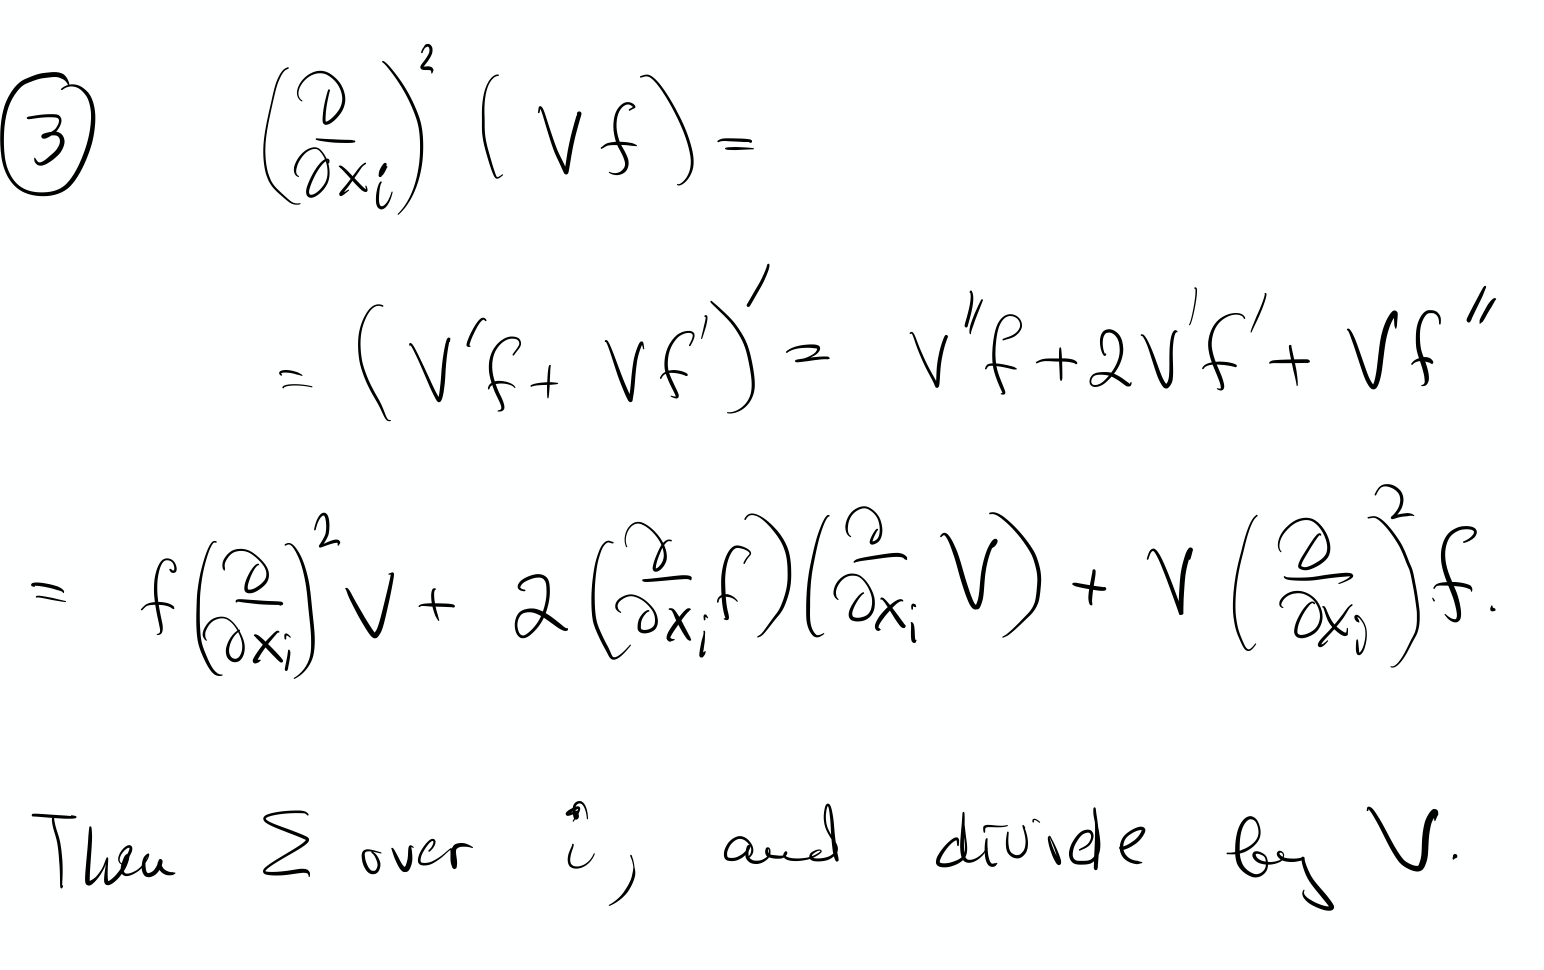 ③ (∂/∂xᵢ)² (Vf) =
= (V'f + Vf')' = V''f + 2V'f' + Vf''
= f(∂/∂xᵢ)² V + 2(∂/∂xᵢ f)(∂/∂xᵢ V) + V(∂/∂xᵢ)² f.
Then Σ over i, and divide by V.